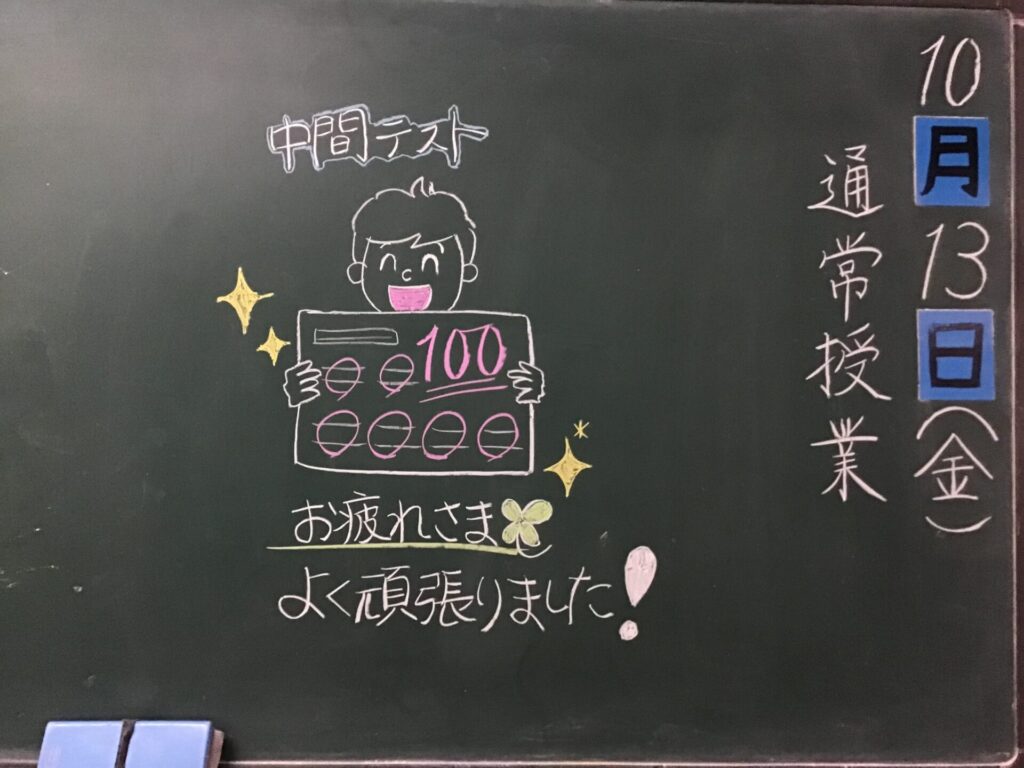 10月13日(金)
通常授業
中間テスト
100
お疲れさま
よく頑張りました!